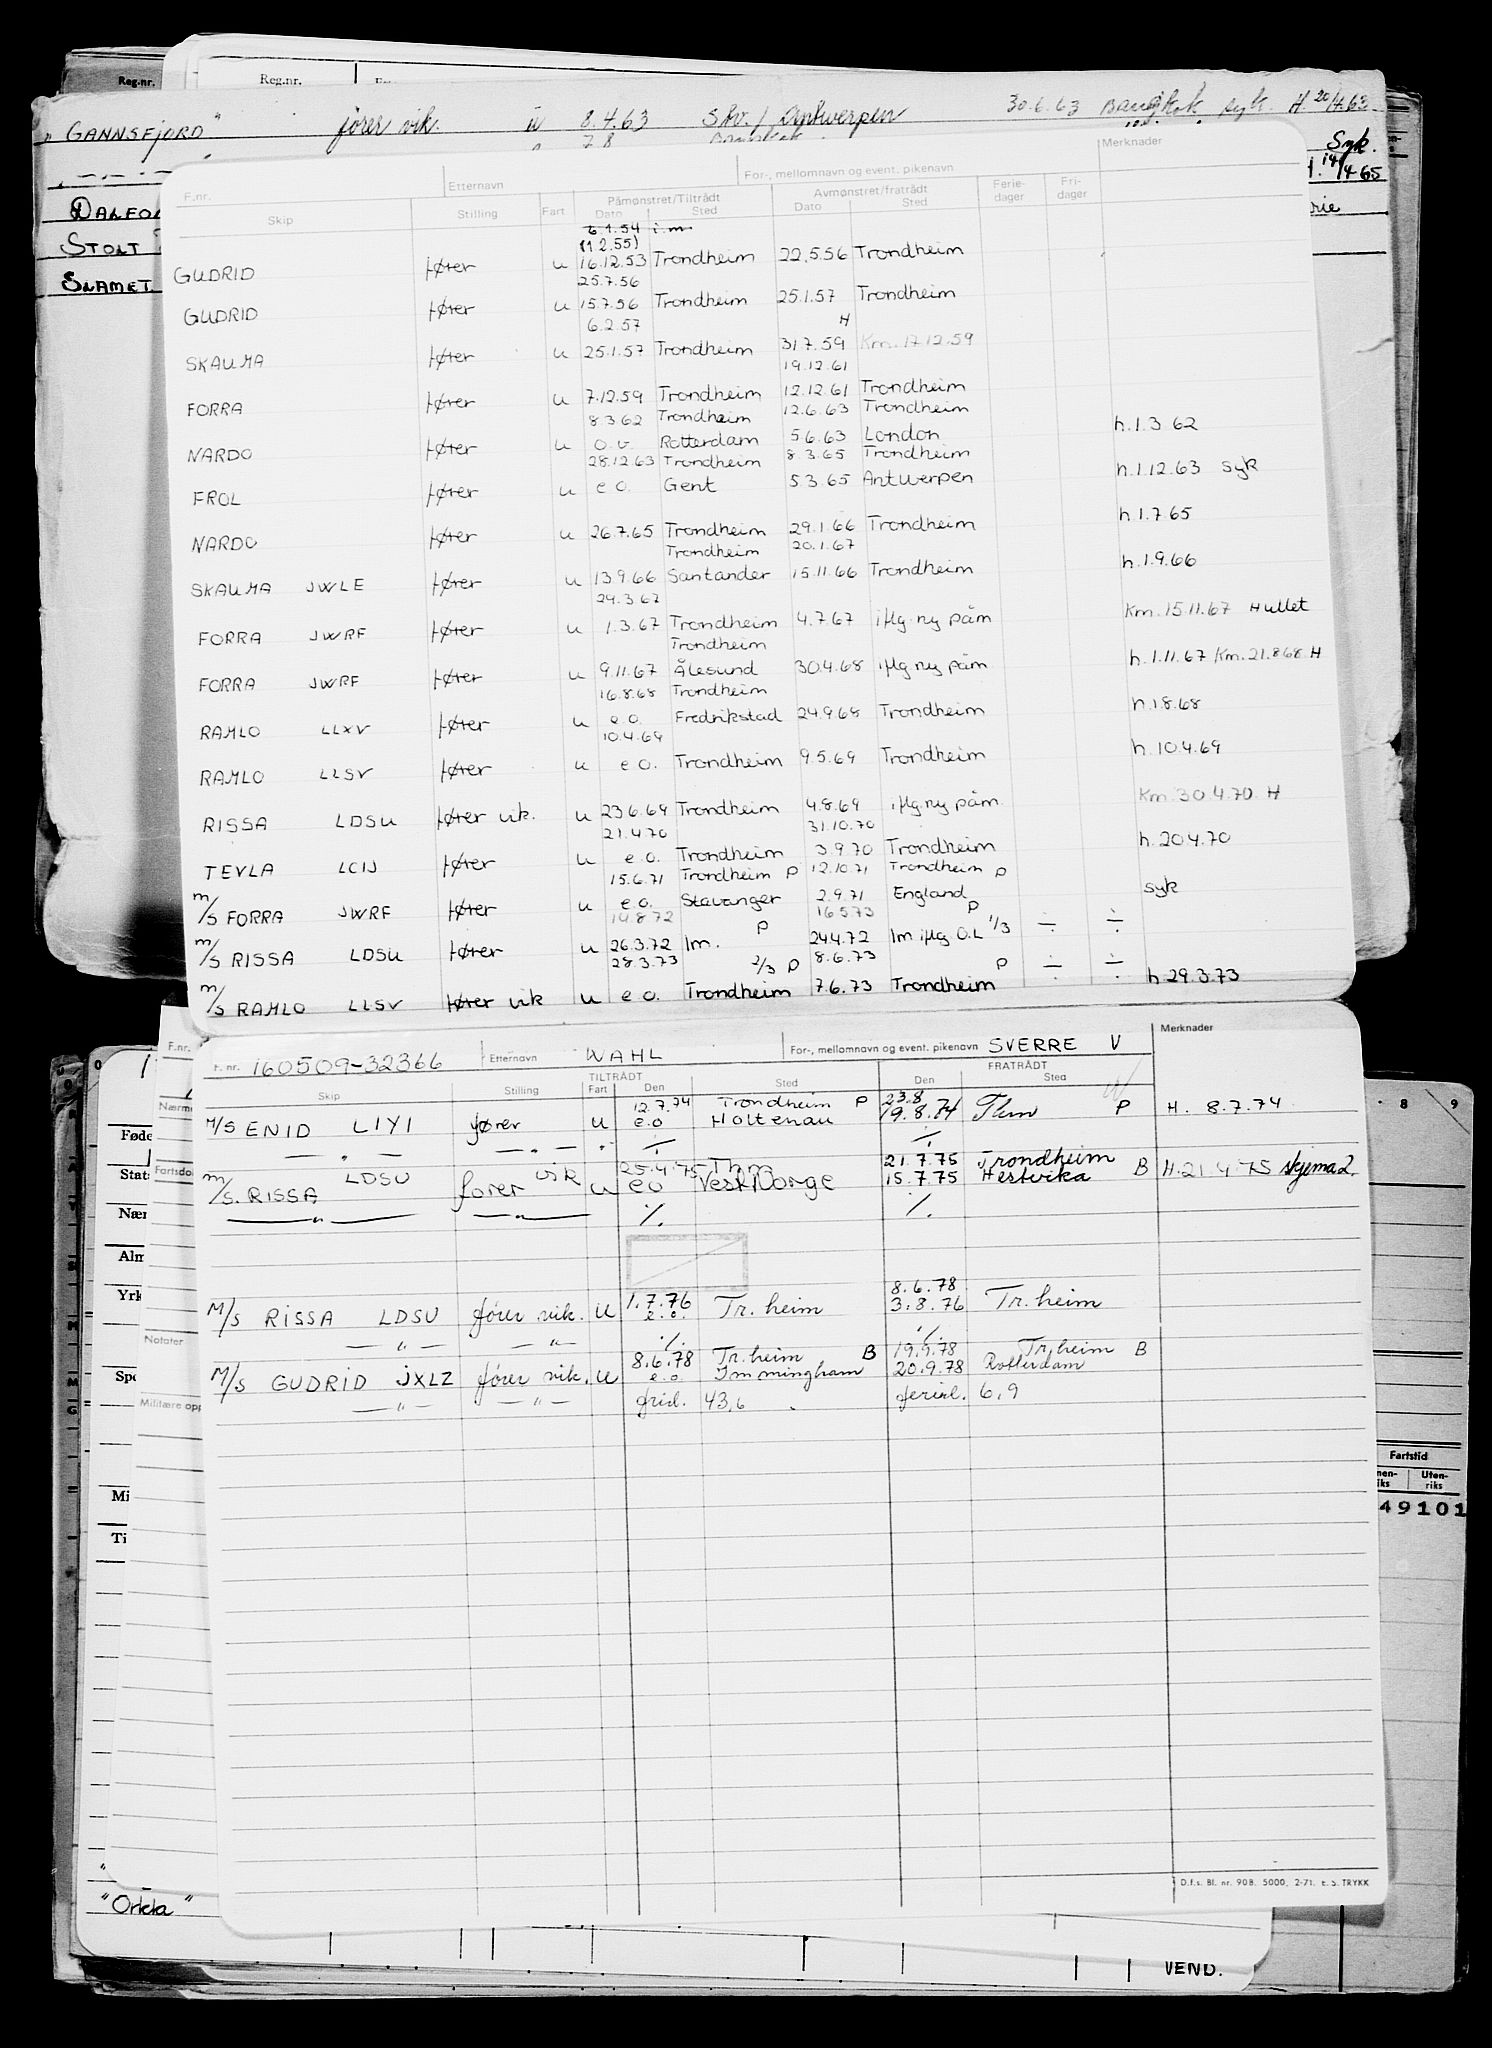 Reg.nr.
Reg.nr.
"GANNSFJORD" fører vik. u 8.4.63 Skv./Antwerpen 30.6.63 Bangkok syk. H. 20/4.63
7.8
Syk.
14/4 65
DALFO
STOLT
SLAMET
F.nr. Etternavn For-, mellomnavn og event. pikenavn Merknader
Skip Stilling Fart Påmønstret/Tiltrådt Dato Sted Avmønstret/fratrådt Dato Sted Ferie-dager Fri-dager
6.1.54 i.m
(1 2.55)
GUDRID fører u 16.12.53 Trondheim 22.5.56 Trondheim
25.7.56
GUDRID fører u 15.7.56 Trondheim 25.1.57 Trondheim
6.2.57 H
SKAUMA fører u 25.1.57 Trondheim 31.7.59 Km. 17.12.59
19.12.61
FORRA fører u 7.12.59 Trondheim 12.12.61 Trondheim
8.3.62 Trondheim 12.6.63 Trondheim
NARDO fører u o.v. Rotterdam 5.6.63 London h.1.3.62
28.12.63 Trondheim 8.3.65 Trondheim
FROL fører u e.o. Gent 5.3.65 Antwerpen h.1.12.63 syk
NARDO fører u 26.7.65 Trondheim 29.1.66 Trondheim h.1.7.65
Trondheim 20.1.67
SKAUMA JWLE fører u 13.9.66 Santander 15.11.66 Trondheim h.1.9.66
29.3.67
FORRA JWRF fører u 1.3.67 Trondheim 4.7.67 iflg. ny påm Km.15.11.67 Hullet
Trondheim
FORRA JWRF fører u 9.11.67 Ålesund 30.4.68 iflg ny påm h.1.11.67 Km.21.8.68 H
16.8.68 Trondheim
RAMLO LLXV fører u e.o. Fredrikstad 24.9.68 Trondheim h.1.8.68
10.4.69
RAMLO LLSV fører u e.o. Trondheim 9.5.69 Trondheim h.10.4.69
RISSA LDSU fører vik. u 23.6.69 Trondheim 4.8.69 iflg.ny påm. Km.30.4.70 H
21.4.70 31.10.70
TEVLA LCIJ fører u e.o. Trondheim 3.9.70 Trondheim h.20.4.70
15.6.71 Trondheim P 12.10.71 Trondheim P
M/S FORRA JWRF fører u e.o. Stavanger 2.9.71 England syk
14.8.72 P 16.5.73 P
M/S RISSA LDSU fører u 26.3.72 Im. 24.4.72 Im iflg O.L 1/3 ÷ ÷
28.3.73 2/3 P 8.6.73 P
M/S RAMLO LLSV fører vik u e.o. Trondheim 7.6.73 Trondheim ÷ ÷ h.29.3.73
F.nr. 160509-32366 Etternavn WAHL For-, mellomnavn og event. pikenavn SVERRE V Merknader
Skip Stilling TILTRÅDT Fart Den Sted FRATRÅDT Den Sted
12.7.74 Trondheim P 23.8
M/S ENID LIYI fører u e.o Holtenau 19.8.74 Thm P H. 8.7.74
— " — — " — " ./. ./.
25.4.75 Thm 21.7.75 Trondheim
M/S. RISSA LDSU fører vik u eo Vest Norge 15.7.75 Hestvika B H.21.4.75 skjema 2
— " — — " — ./. ./.
8.6.78
M/S RISSA LDSU fører vik. u 1.7.76 e.o. Tr.heim 3.8.76 Tr.heim
— " — — " — ./. ./.
8.6.78 Tr.heim B 19.9.78 Tr.heim B
M/S GUDRID JXLZ fører vik. u e.o. Immingham 20.9.78 Rotterdam
— " — — " — frid. 43,6 ferid. 6,9
D.f.s. Bl. nr. 90B. 5000. 2-71. E.S. TRYKK
F.nr.
Nærm
Føde
Fartsdo
Stats
Nær
Alm
Yrk
Notater
Spe
Militære opp
Mi
Ti
"Orkla"
8 9
Fartstid
Uten-riks
49101
VEND.